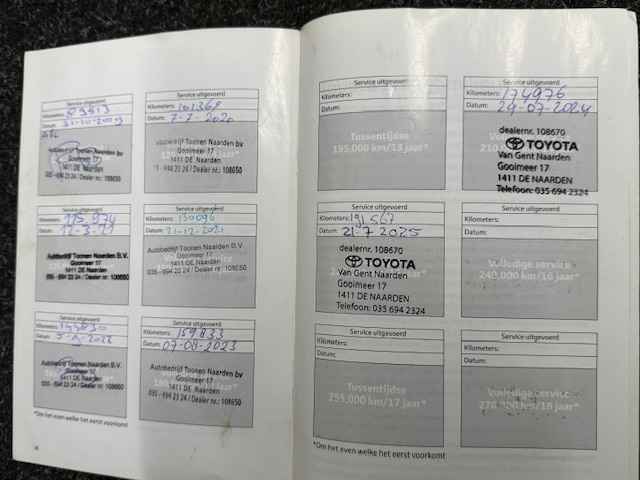 Service uitgevoerd
Kilometers:
Datum:
Autobedrijf Toonen Naarden bv
Gooimeer 17
1411 DE Naarden
035 - 694 23 24 / Dealer nr.: 108650
Service uitgevoerd
Kilometers: 101369
Datum: 7-7-2020
Autobedrijf Toonen Naarden bv
Gooimeer 17
1411 DE Naarden
- 694 23 24 / Dealer nr.: 108650
Service uitgevoerd
Kilometers: 115 974
Datum: 12-3-21
Autobedrijf Toonen Naarden B.V.
Gooimeer 17
1411 DE Naarden
035 - 694 23 24 / Dealer nr.: 108650
Service uitgevoerd
Kilometers: 130096
Datum: 21-12-2021
Autobedrijf Toonen Naarden B.V.
Gooimeer 17
1411 DE Naarden
035 - 694 23 24 / Dealer nr.: 108650
Service uitgevoerd
Kilometers:
Datum:
Autobedrijf Toonen Naarden B.V.
Gooimeer 17
1411 DE Naarden
035 - 694 23 24 / Dealer nr.: 108650
Service uitgevoerd
Kilometers: 159833
Datum: 07-08-2023
Autobedrijf Toonen Naarden B.V.
Gooimeer 17
1411 DE Naarden
035 - 694 23 24 / Dealer nr.: 108650
*Om het even welke het eerst voorkomt
Service uitgevoerd
Kilometers:
Datum:
Tussentijdse
195.000 km/13 jaar*
Service uitgevoerd
Kilometers: 174976
Datum: 29-07-2024
dealernr. 108670
TOYOTA
Van Gent Naarden
Gooimeer 17
1411 DE NAARDEN
Telefoon: 035 694 2324
Service uitgevoerd
Kilometers: 191 567
Datum: 21-7-2025
dealernr. 108670
TOYOTA
Van Gent Naarden
Gooimeer 17
1411 DE NAARDEN
Telefoon: 035 694 2324
Service uitgevoerd
Kilometers:
Datum:
Volledige service
240.000 km/16 jaar*
Service uitgevoerd
Kilometers:
Datum:
Tussentijdse
255.000 km/17 jaar*
Service uitgevoerd
Kilometers:
Datum:
Volledige service
270.000 km/18 jaar*
*Om het even welke het eerst voorkomt